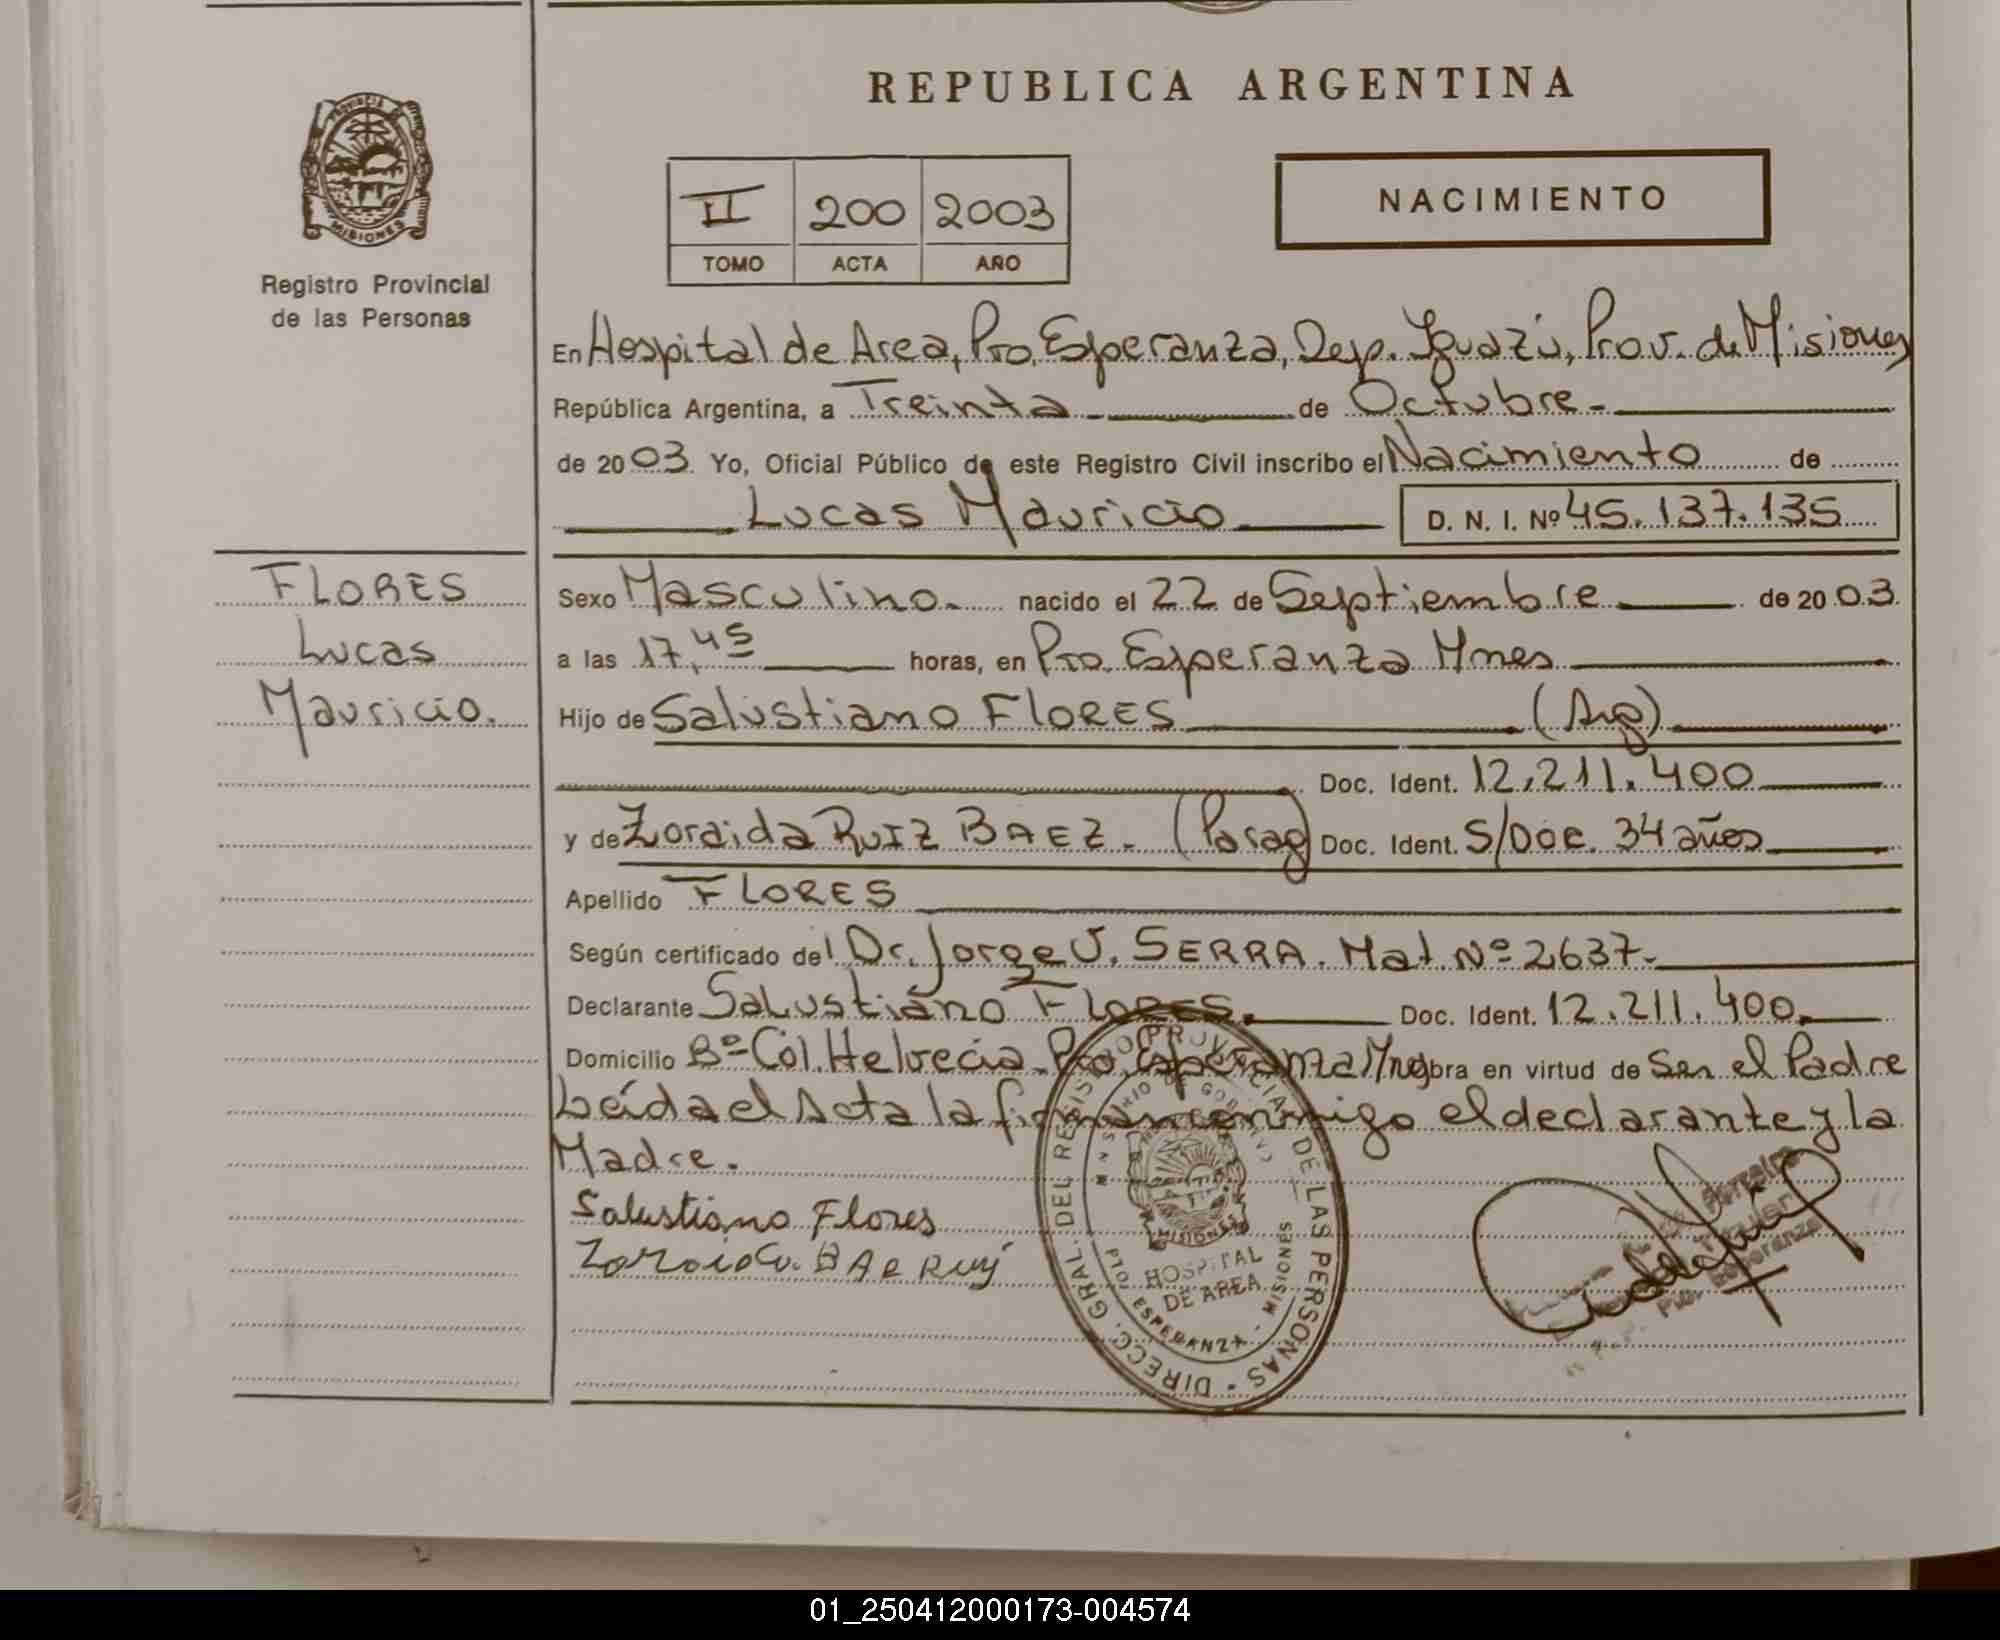 REPUBLICA ARGENTINA
PROVINCIA
MISIONES
Registro Provincial
de las Personas
NACIMIENTO
II 200 2003
TOMO ACTA AÑO
En Hospital de Area, Pto. Esperanza, Dep. Iguazú, Prov. de Misiones
República Argentina, a Treinta de Octubre.
de 2003. Yo, Oficial Público de este Registro Civil inscribo el Nacimiento de
Lucas Mauricio D. N. I. Nº 45.137.135
FLORES
Lucas
Mauricio.
Sexo Masculino. nacido el 22 de Septiembre de 2003.
a las 17,45 horas, en Pto. Esperanza Mnes
Hijo de Salustiano FLORES (Arg)
Doc. Ident. 12.211.400
y de Zoraida RUIZ BAEZ. (Parag) Doc. Ident. S/DOC. 34 años
Apellido FLORES
Según certificado del Dr. Jorge J. SERRA. Mat. Nº 2637.
Declarante Salustiano FLORES. Doc. Ident. 12.211.400.
Domicilio Bº Col. Helvecia. Pto. Esperanza Mnes obra en virtud de Ser el Padre
Leída el Acta la firman conmigo el declarante y la
Madre.
Salustiano Flores
DIRECC. GRAL. DEL REGISTRO PROVINCIAL DE LAS PERSONAS
MISIONES
HOSPITAL
DE AREA
ESPERANZA - MISIONES
01_250412000173-004574